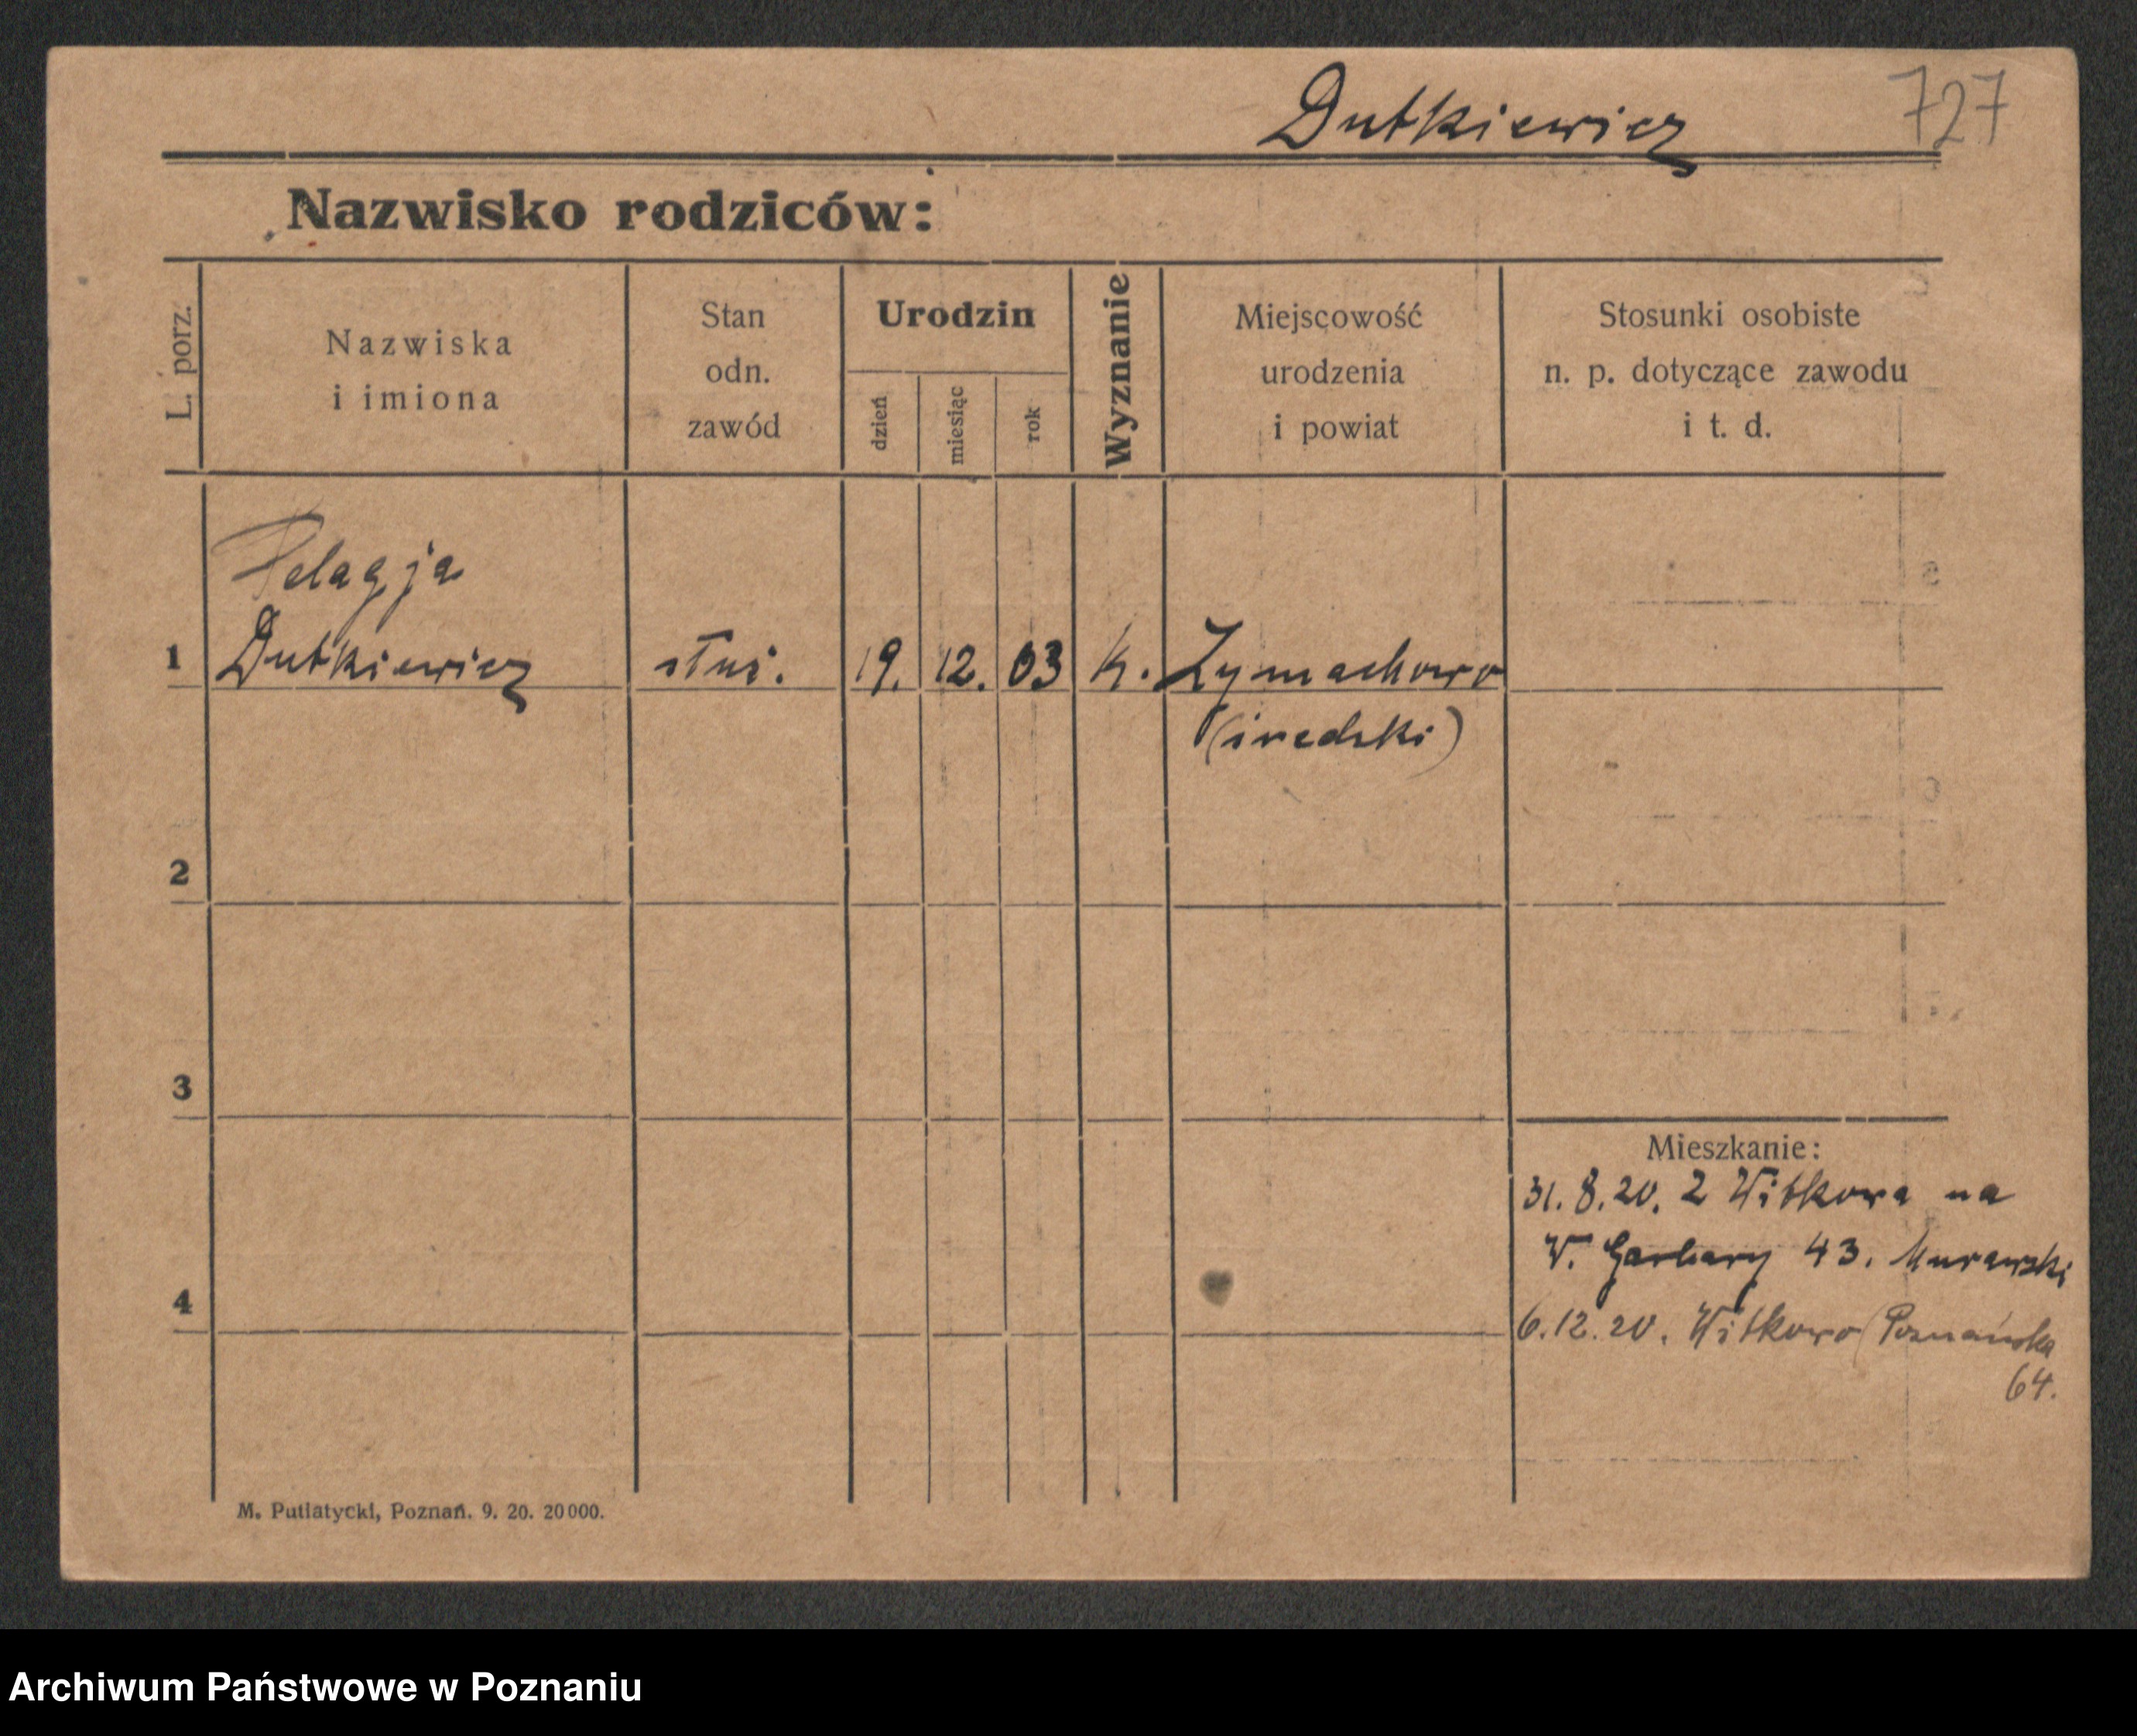 Dutkiewicz 727
Nazwisko rodziców:
L. porz.
Nazwiska
i imiona
Stan
odn.
zawód
Urodzin
dzień
miesiąc
rok
Wyznanie
Miejscowość
urodzenia
i powiat
Stosunki osobiste
n. p. dotyczące zawodu
i t. d.
Pelagja
1 Dutkiewicz służ. 19. 12. 03 k. Zymachowo
(średzki)
2
3
4
Mieszkanie:
31. 8. 20. Z Witkowa na
W. Garbary 43. Murawski
6. 12. 20. Witkowo (Poznańska
64.
M. Putiatycki, Poznań. 9. 20. 20000.
Archiwum Państwowe w Poznaniu